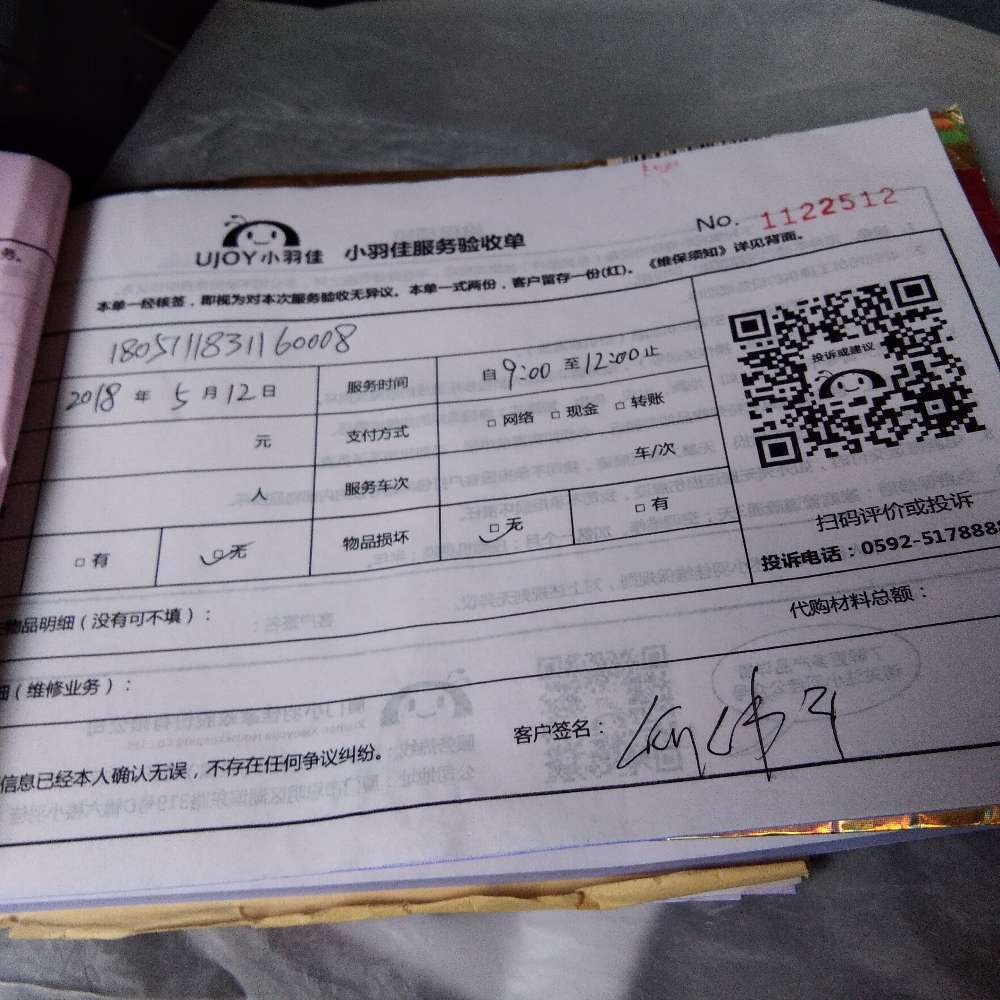 No. 1122512
UJOY小羽佳 小羽佳服务验收单
本单一经核签，即视为对本次服务验收无异议。本单一式两份，客户留存一份(红)。《维保须知》详见背面。
投诉或建议
2018 年 5 月 12 日 服务时间 自 9:00 至 12:00 止
元 支付方式 □ 网络 □ 现金 □ 转账
人 服务车次 车/次
□ 有 □ 无 物品损坏 □ 无 □ 有
扫码评价或投诉
投诉电话：0592-517888
物品明细（没有可不填）： 代购材料总额：
细（维修业务）：
客户签名：
信息已经本人确认无误，不存在任何争议纠纷。
务。